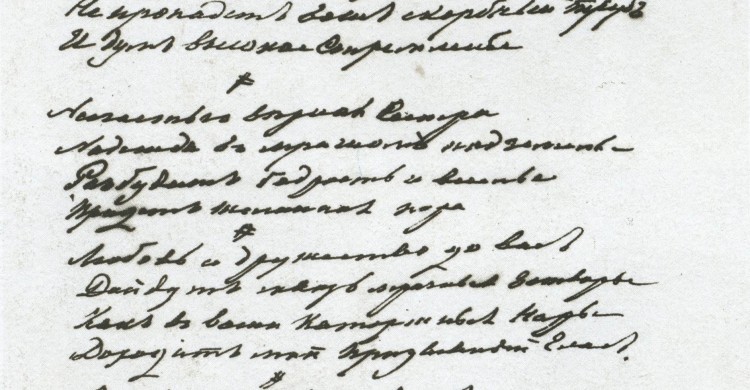 Не пропадетъ Вашъ скорбный трудъ
И думъ высокое Стремленье
Несчастью вѣрная Сестра
Надежда въ мрачномъ подземелье
Разбудитъ бодрость и веселье
Придетъ желанная пора
Любовь и дружество до васъ
Дойдутъ сквозь мрачные Затворы
Какъ въ ваши каторжные Норы
Доходитъ мой Призывный Гласъ.